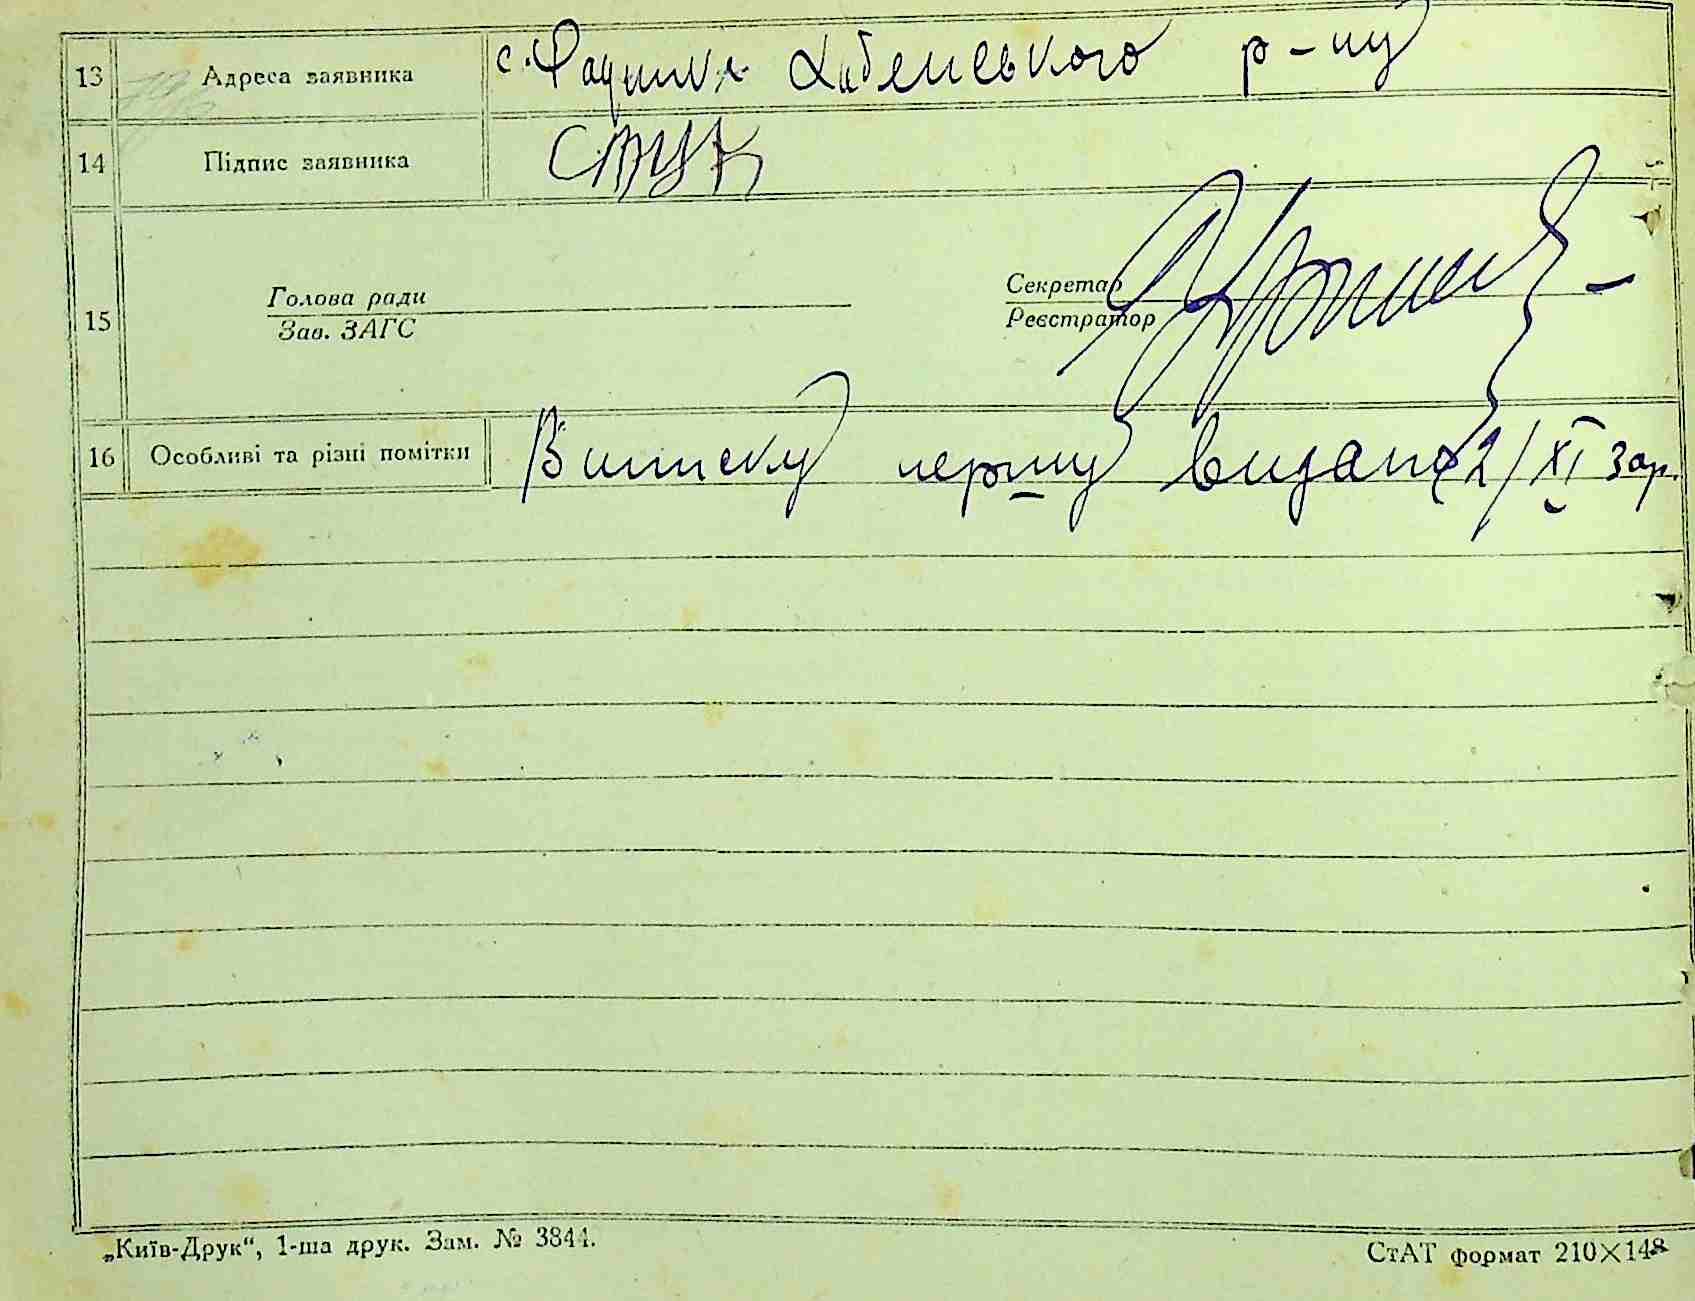 13 Адреса заявника с. Фадинка Хабенського р-ну
14 Підпис заявника Стук
15 Голова ради
Зав. ЗАГС
Секретар
Реєстратор
16 Особливі та різні помітки Виписку першу видано 2/XI
„Київ-Друк“, 1-ша друк. Зам. № 3844.
СтАТ формат 210×148